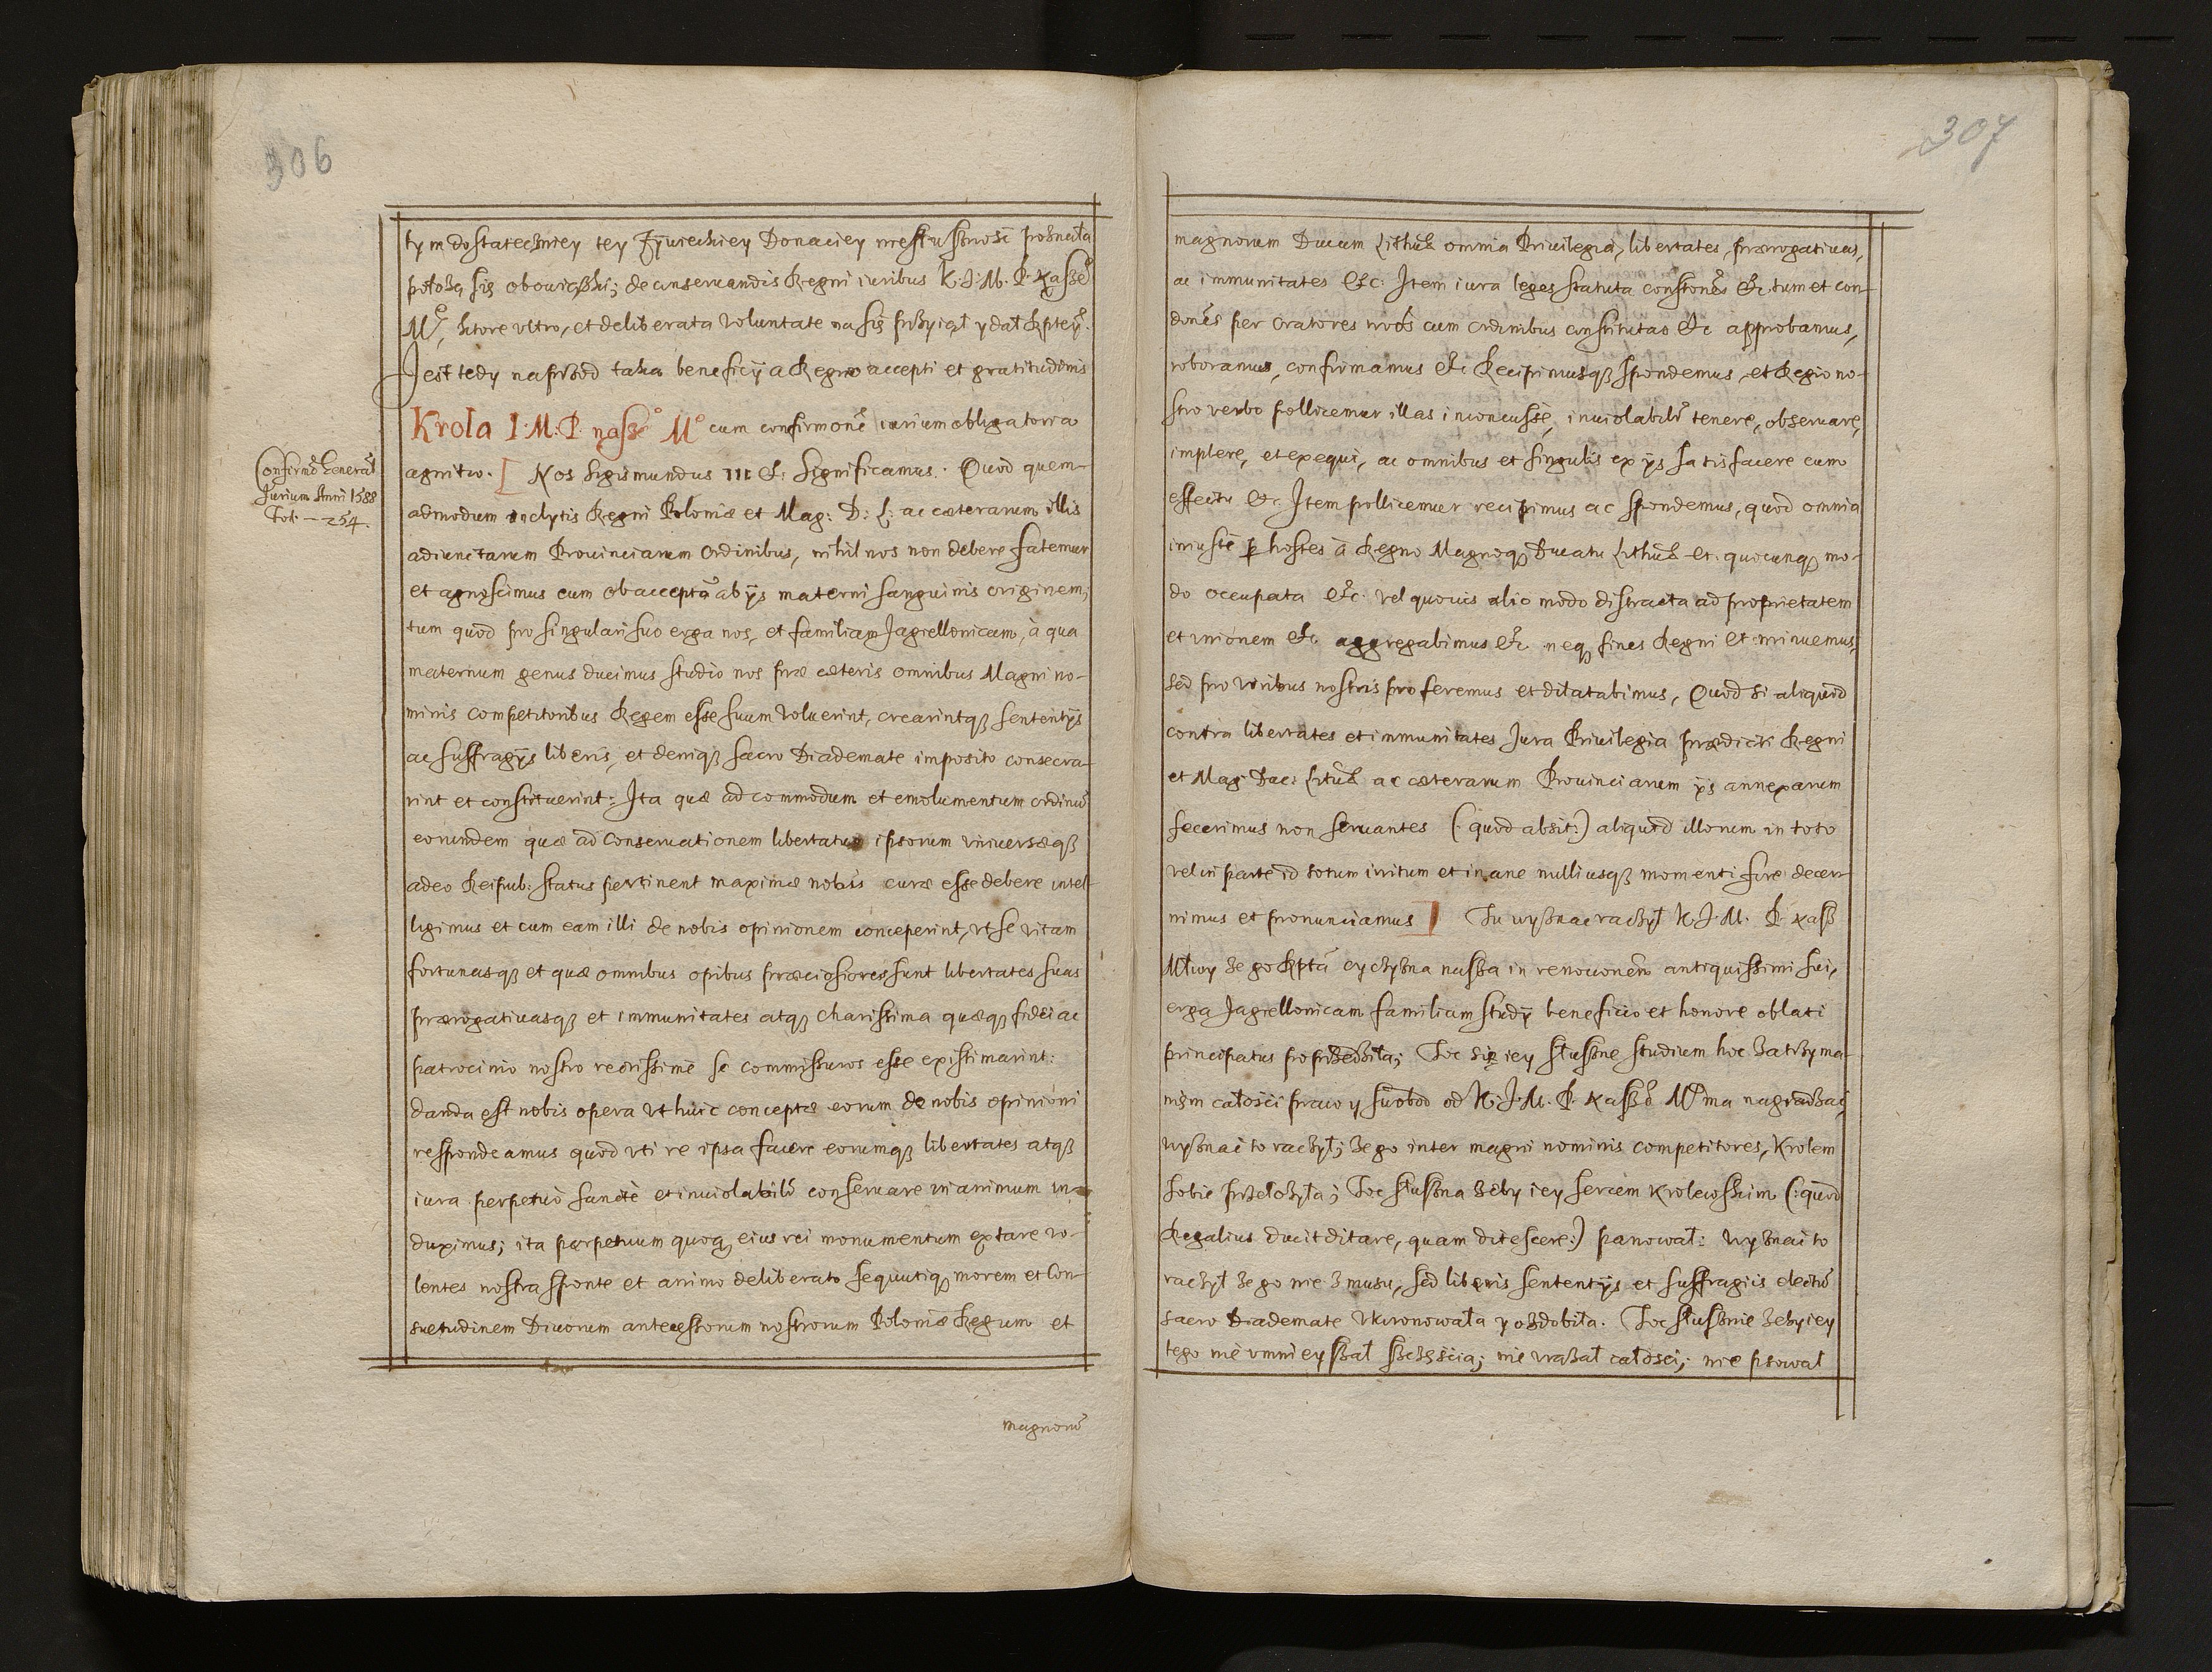 306
tym dostatecżniey tey Zÿwiechiey Donaciey niesłusżność poznała
położą się obowiąski; de conseruandis Regni iuribus K. J. M. P. Nasze͠
M͠, ktore vltro, et deliberata voluntate na się przyiął y dał Rptey.
Jest tedy naprzod taka beneficÿ a Regno accepti et gratitudinis
Krola J. M. P. nasze͠ M͠ cum confirmone͠ iurium obligatoria
Confirmo͠ General͠
Jurium Anni 1588
Fol. — 254.
agnitio. [ Nos Sigismundus III &: Significamus. Quod quem-
admodum inclytis Regni Poloniæ et Mag: D: L: ac cæterarum illis
adiunctarum Prouinciarum Ordinibus, nihil nos non debere fatemur
et agnoscimus cum ob acceptã ab ÿs materni sanguinis originem,
tum quod pro singulari suo erga nos, et familiam Jagiellonicam, à qua
maternum genus ducimus studio nos præ cæteris omnibus Magni no-
minis competitoribus Regem esse suum voluerint, crearintqȝ sententÿs
ac suffragÿs liberis, et deniqȝ sacro Diademate imposito consecra-
rint et constituerint: Ita quæ ad commodum et emolumentum ordinũ
eorundem quæ ad conseruationem libertatum ipsorum vniuersæqȝ
adeo Reipub: status pertinent maximæ nobis curæ esse debere intel-
ligimus et cum eam illi de nobis opinionem conceperint, vt se vitam
fortunasqȝ et quæ omnibus opibus præciosiores sunt libertates suas
prærogatiuasqȝ et immunitates atqȝ charissima quæqȝ fidei ac
patrocinio nostro rectissimè se commissuros esse existimarint:
danda est nobis opera vt huic conceptæ eorum de nobis opinioni
respondeamus quod vti re ipsa facere eorumqȝ libertates atqȝ
iura perpetuò sanctè et inuiolabilr͠ conseruare in animum in-
duximus; ita perpetuum quoqȝ eius rei monumentum extare vo-
lentes nostra sponte et animo deliberato sequutiqȝ morem et Con-
suetudinem Diuorum antecessorum nostrorum Poloniæ Regum et
magnorũ
307
magnorum Ducum Lithuæ omnia Priuilegia, libertates, prærogatiuas,
ac immunitates &c: Item iura leges statuta constones͠ &c. tum et con-
dones͠ per Oratores nros͠ cum ordinibus constitutas &c approbamus,
roboramus, confirmamus &c Recipimusqȝ spondemus, et Regio no-
stro verbo pollicemur illas inconcussè, inuiolabilr͠ tenere, obseruare,
implere, et exequi, ac omnibus et singulis ex ÿs satisfacere cum
effectu &c. Item pollicemur recipimus ac spondemus, quod omnia
iniustè ꝑ hostes à Regno Magnoqȝ Ducatu Lithuæ et. quocunqȝ mo-
do occupata &c. vel quouis alio modo distracta ad proprietatem
et vnionem &c aggregabimus &c neqȝ fines Regni et minuemus,
sed pro viribus nostris proferemus et dilatabimus, Quod si aliquid
contra libertates et immunitates Jura Priuilegia prædicti Regni
et Mag: Duc: Lituæ ac cæterarum Prouinciarum ÿs annexarum
fecerimus non seruantes (: quod absit:) aliquid illorum in toto
vel in parte id totum irritum et inane nulliusqȝ momenti fore decer-
nimus et pronunciamus ] Tu wyznac racżył K. J. M. P. Nasz
Młwy że go Rptã oycżyzna nasza in renouonem͠ antiquissimi sui,
erga Jagiellonicam familiam studÿ beneficio et honore oblati
principatus poprzedziła; Toc się iey słuszne studium hoc zatrzyma-
nim całości praw y swobod od K. J. M. P. Nasze͠ M͠ ma nagradzać,
wyznać to racżył; że go inter magni nominis competitores, Krolem
sobie przełożyła; Toc słuszna żeby iey sercem Krolewskim (: quod
Regalius ducit ditare, quam ditescere:) panował: wyznać to
racżył że go nie z musu, sed liberis sententÿs et suffragiis electũ
sacro Diademate vkoronowała y ozdobiła. Toc słusznie żeby iey
tego nie vmnieyszał szcżęścia; nie vrażał całości; nie psował